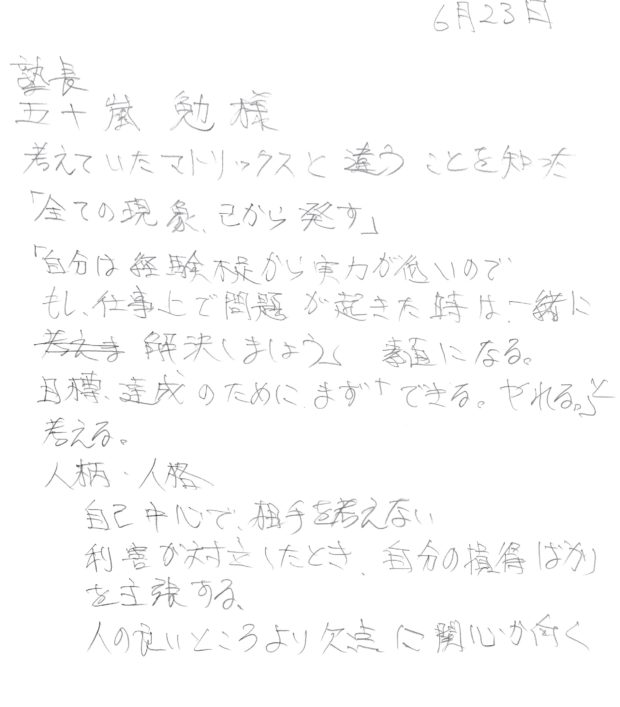 6月23日
塾長
五十嵐 勉 様
考えていたマトリックスと違うことを知った
「全ての現象、己から発す」
「自分は経験不足から実力が低いので
もし、仕事上で問題が起きた時は、一緒に
考えま 解決しましょう」 素直になる。
目標、達成のために、まず「できる。やれる。」と
考える。
人柄・人格
自己中心で、相手を考えない
利害が対立したとき、自分の損得ばかり
を主張する、
人の良いところより欠点に関心が向く